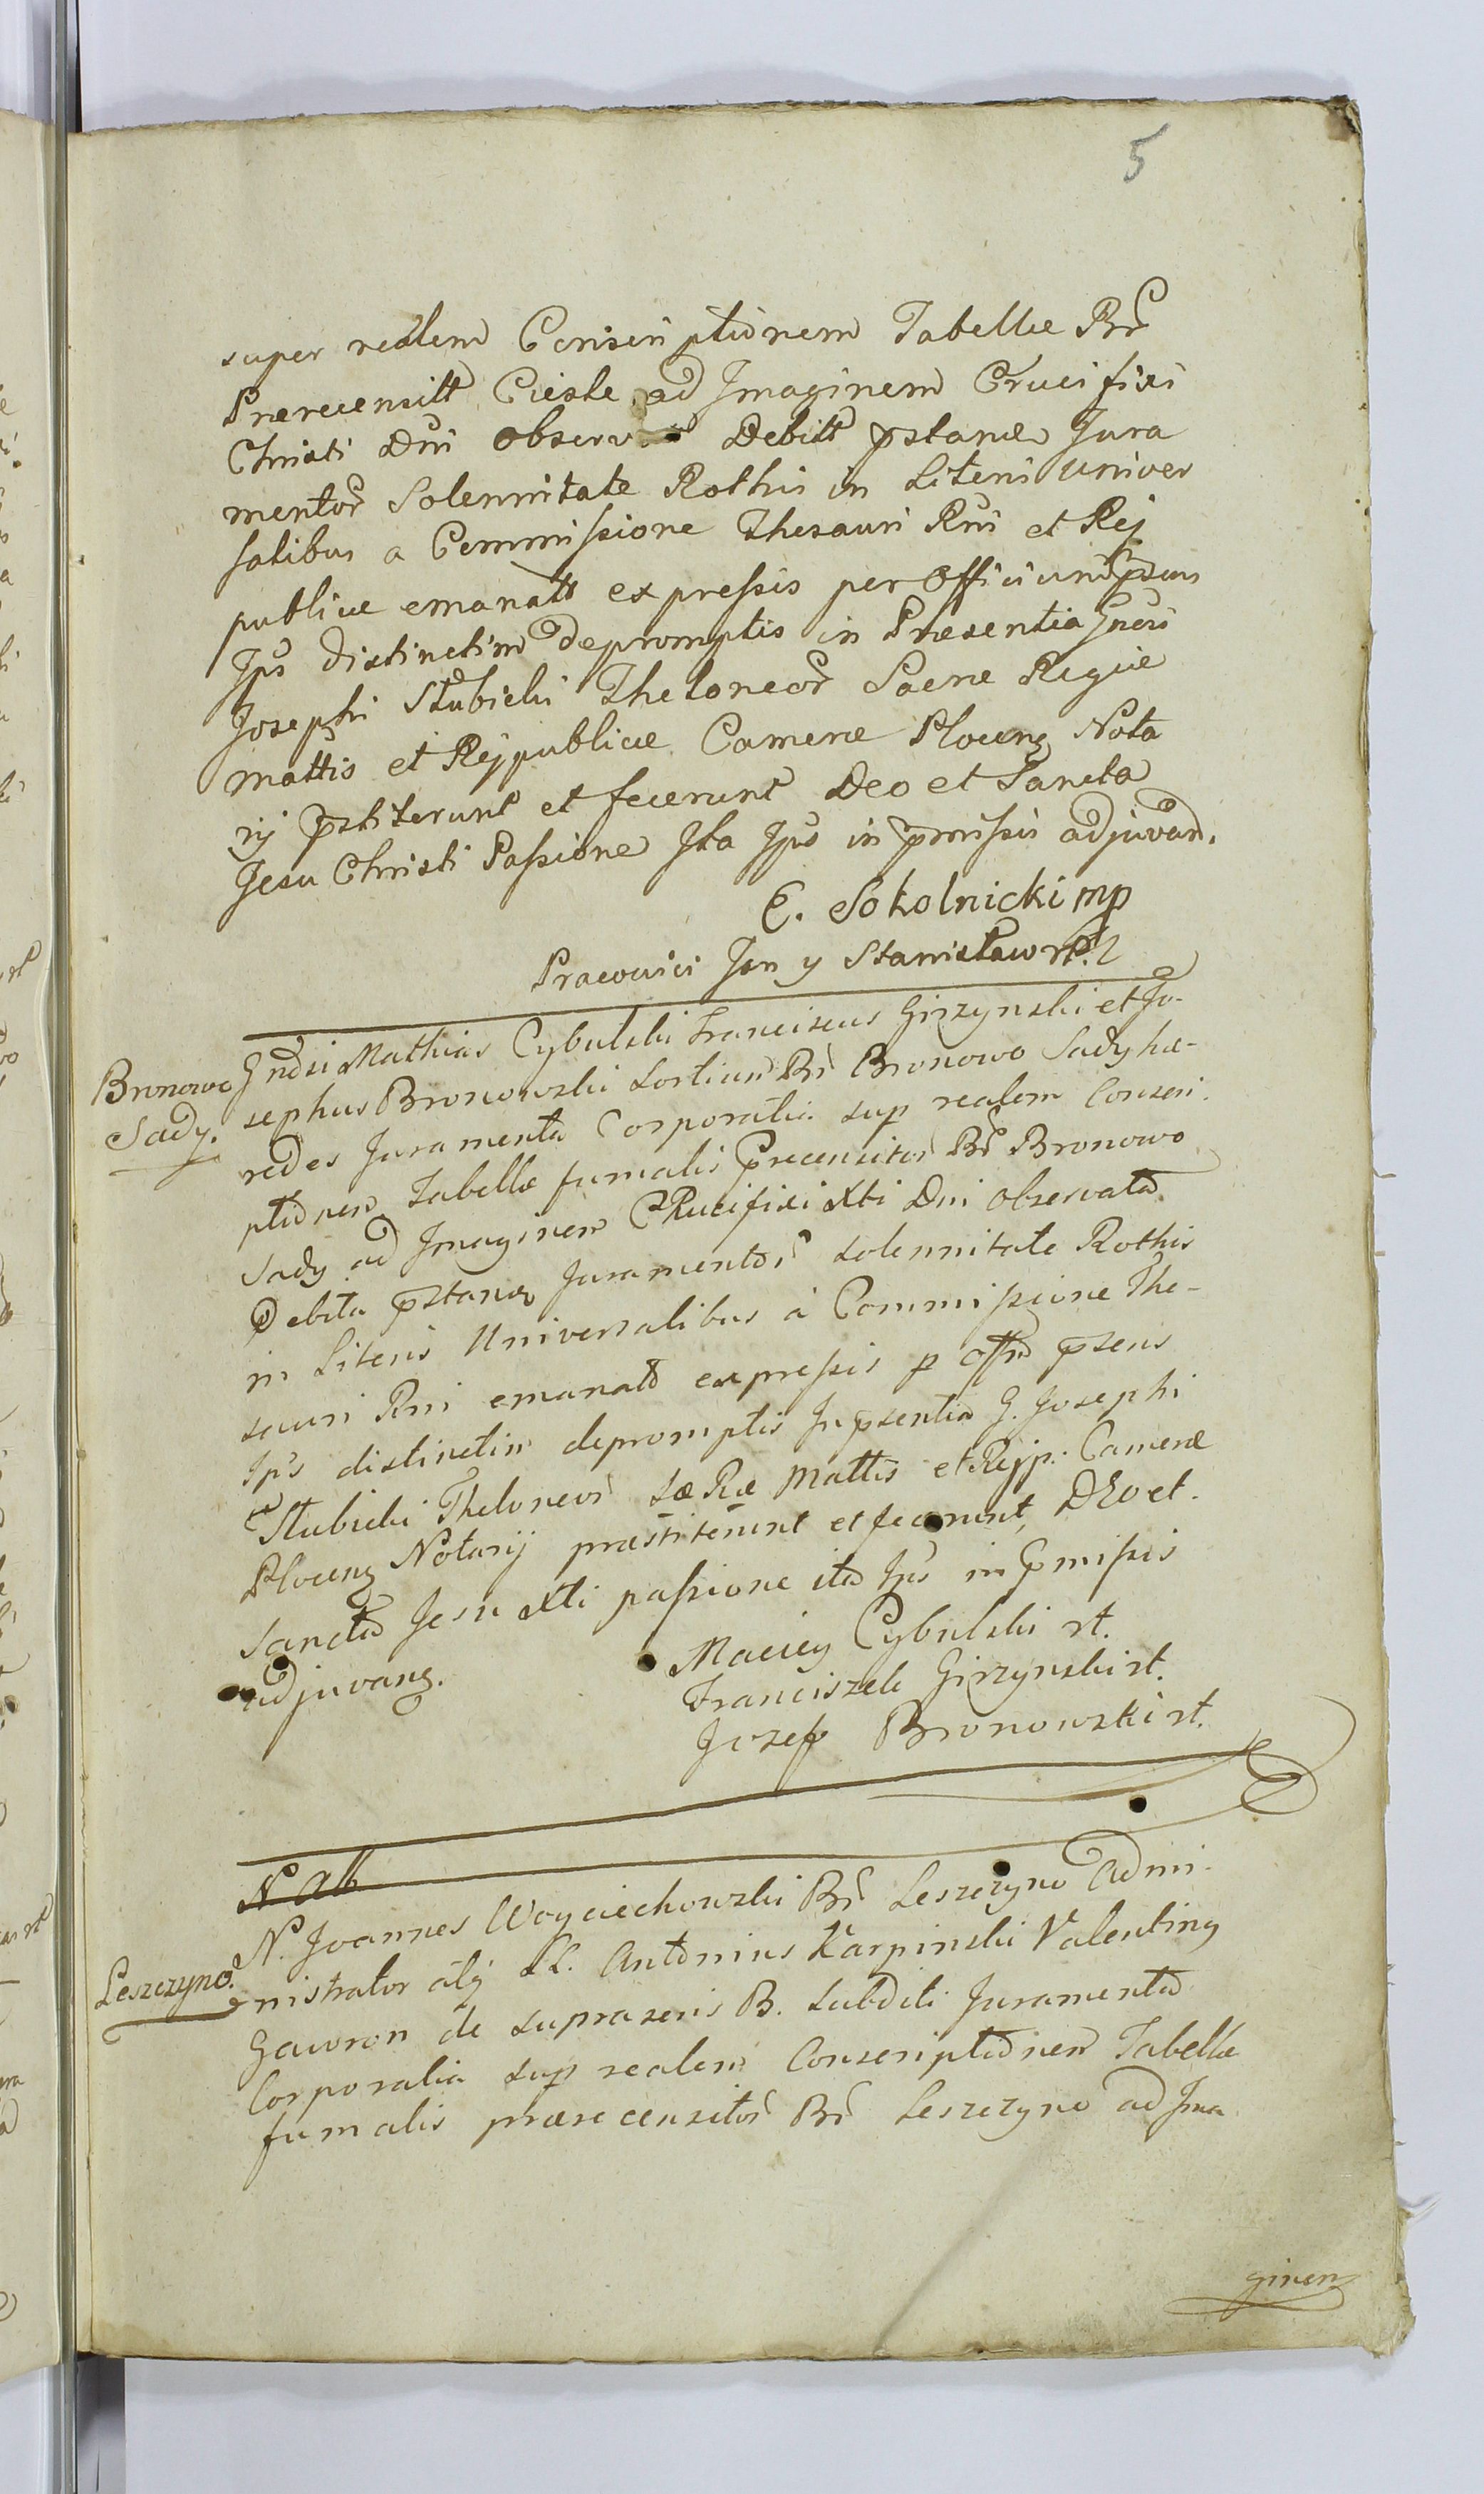 5
super realem Conscriptionem Tabellæ Br
Prærecensitt Cieśle ad Imaginem Crucifixi
Christi Dni Observ Debitt pstanæ Jura
mentor Solennitate Rothis in Literis Univer
salibus a Commissione Thesauri Rni et Rej
publicæ emanatt expressis per Officium psens
Ips distinctim depromptis in Præsentia Gnosi
Josephi Stubicki Theloneor Sacræ Regiæ
Mattis et Rejpublicæ Cameræ Plocens Nota
rij pstiterunt et fecerunt Deo et Sancta
Jesu Christi Passione Ita Ips in pmissis adjuvan.
E. Sokolnicki mp
Pracowici Jan y Stanisław rt
Bronowo
Sady.
Gnosi Mathias Cybulski Franciscus Girzynski et Jo-
sephus Bronowski Sortium Br Bronowo Sady hæ-
redes Juramenta Corporalia sup realem Conscri-
ptionem Tabellæ fumalis Precensitor Br Bronowo
Sady ad Imaginem CRucifixi Xti Dni Observata
Debita pstanæ Juramentor solennitate Rothis
in Literis Universalibus à Commissione The-
sauri Rni emanatt expressis p Offm psens
Ips distinctim depromptis In psentia G. Josephi
Stubicki Theloneor Sæ Ræ Mattis et Rejp: Cameræ
Plocens Notarij præstiterunt et fecerunt, DEo et
Sancta Jesu Xti passione ita Ips in Pmissis
adjuvans.
Maciey Cybulski rt.
Franciszek Girzynski rt.
Jozef Bronowski rt.
N. Ab
Leszczyno.
N. Joannes Woyciechowski Br Leszczyno Admi-
nistrator alij LL. Antonius Karpinski Valentiny
Gawron de supraseris B. Subditi Juramenta
Corporalia sup realem Conscriptionem Tabellæ
fumalis prærecensitor Br Leszczyno ad Ima
ginem